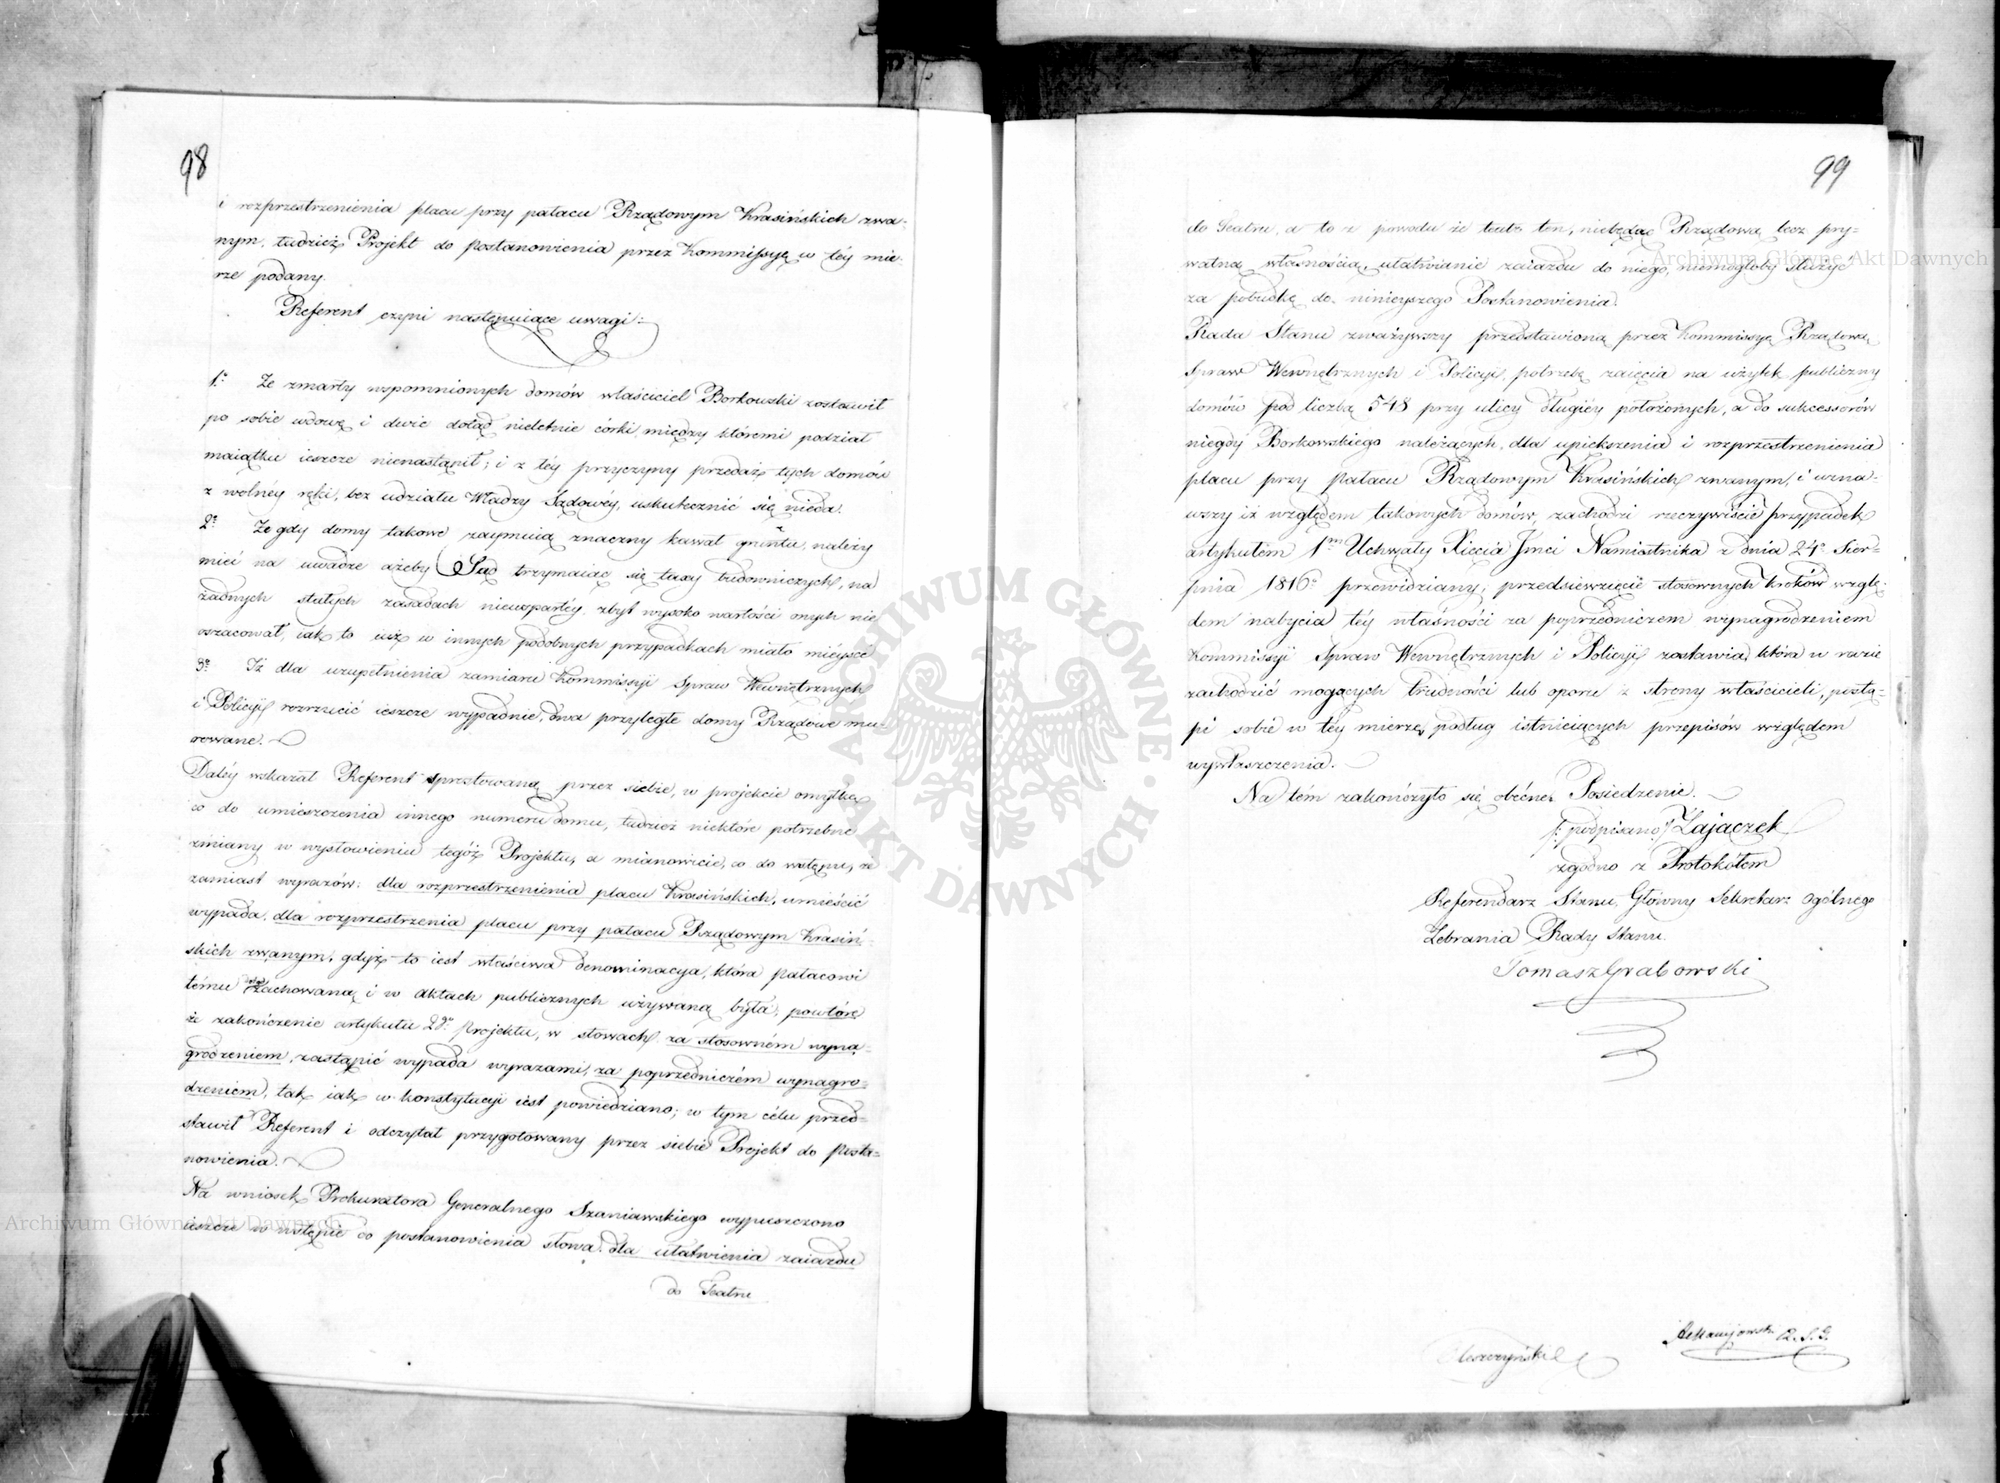 98
i rozprzestrzenienia placu przy pałacu Rządowym Krasińskich zwa-
nym, tudzież Projekt do postanowienia przez Kommissyę w téy mie-
rze podany.
Referent czyni następuiące uwagi:
1° Że zmarły wspomnionych domów właściciel Borkowski zostawił
po sobie wdowę i dwie dotąd nieletnie córki, między któremi podział
maiątku ieszcze nienastąpił; i z téy przyczyny przedaż tych domów
z wolnéy ręki, bez udziału Władzy Sądowéy, uskutecznić się nieda.
2° Że gdy domy takowe zaymuią znaczny kawał gruntu, należy
mieć na uwadze ażeby Sąd trzymaiąc się taxy budowniczych, na
żadnych stałych zasadach niewspartéy, zbyt wysoko wartości onych nie
oszacował, iak to iuż w innych podobnych przypadkach miało mieysce
3° Iż dla uzupełnienia zamiaru Kommissyi Spraw Wewnętrznych
i Policyi rozrzucić ieszcze wypadnie, dwa przyległe domy Rządowe mu-
rowane.
Daléy wskazał Referent sprostowaną przez siebie, w projekcie omyłkę
co do umieszczenia innego numeru domu, tudzież niektóre potrzebne
zmiany w wysłowieniu tegóż Projektu, a mianowicie, co do wstępu, że
zamiast wyrazów: dla rozprzestrzenienia placu Krasińskich, umieścić
wypada, dla rozprzestrzenia placu przy pałacu Rządowym Krasiń-
skich zwanym, gdyż to iest właściwa denominacya, która pałacowi
tému zachowaną i w aktach publicznych używaną była; powtóre
że zakończenie artykułu 2go Projektu, w słowach za stosownem wyna-
grodzeniem, zastąpić wypada wyrazami, za poprzedniczém wynagro-
dzeniem, tak iak w konstytucyi iést powiedziano; w tym célu przed-
stawił Referent i odczytał przygotowany przez siebie Projekt do posta-
nowienia.
Na wniosek Prokuratora Generalnego Szaniawskiego wypuszczono
ieszcze w wstępie do postanowienia słowa: dla ułatwienia zaiazdu
do Teatru
99
do Teatru, a to z powodu że teatr ten, niebędąc Rządową lecz pry-
watną własnością, ułatwianie zaiazdu do niego, niemogłoby służyć
za pobudkę do ninieyszego Postanowienia.
Rada Stanu zważywszy przedstawioną przez Kommissyę Rządową
Spraw Wewnętrznych i Policyi, potrzebę zaięcia na użytek publiczny
domów pod liczbą 548 przy ulicy długiey położonych, a do sukcessorów
niegdy Borkowskiego należących, dla upiększenia i rozprzestrzenienia
placu przy Pałacu Rządowym Krasińskich zwanym, i uzna-
wszy iż względem takowych domów, zachodzi rzeczywiście przypadek
artykułem 1m Uchwały Xięcia Jmci Namiestnika z dnia 24° Sier-
pnia 1816° przewidziany, przedsiewzięcie stosownych kroków wzglę-
dem nabycia téy własności za poprzedniczem wynagrodzeniem
Kommissyi Spraw Wewnętrznych i Policyi zostawia, która w razie
zachodzić mogących trudności lub oporu z strony właścicieli, postą-
pi sobie w téy mierze, podług istnieiących przepisów względem
wywłaszczenia.
Na tém zakończyło się obécne Posiedzenie.
/: podpisano:/ Zajączek
zgodno z Protokółem
Referendarz Stanu, Główny Sekretarz Ogólnego
Zebrania Rady Stanu.
Tomasz Grabowski
R. S. G.
ARCHIWUM GŁÓWNE AKT DAWNYCH
Archiwum Główne Akt Dawnych
Archiwum Główne Akt Dawnych